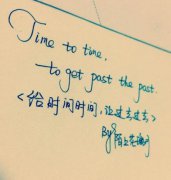 Time to time,
to get past the past.
<给时间时间，让过去过去>
By 陌上花